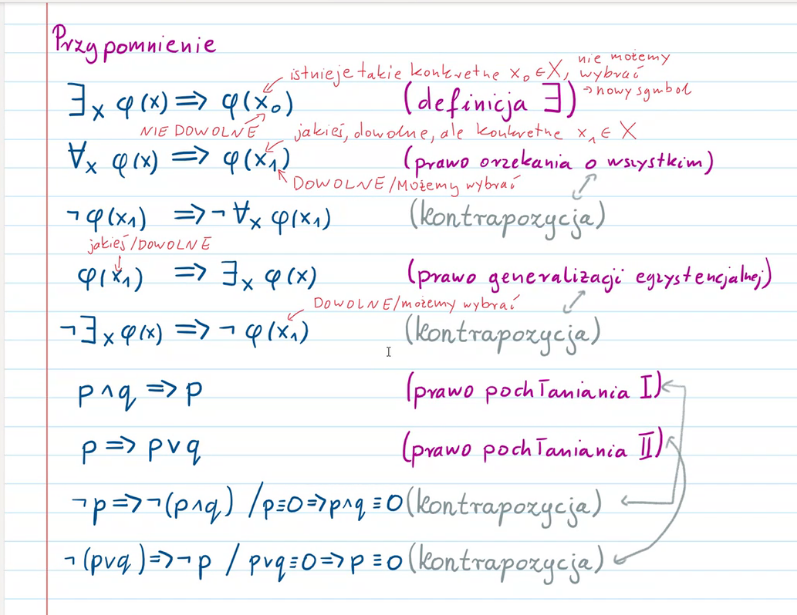 Przypomnienie
istnieje takie konkretne x₀ ∈ X, nie możemy wybrać
→ nowy symbol
∃ₓ φ(x) ⇒ φ(x₀) (definicja ∃)
NIE DOWOLNE jakieś, dowolne, ale konkretne x₁ ∈ X
∀ₓ φ(x) ⇒ φ(x₁) (prawo orzekania o wszystkim)
DOWOLNE/Możemy wybrać
¬φ(x₁) ⇒ ¬∀ₓ φ(x₁) (kontrapozycja)
jakieś/DOWOLNE
φ(x₁) ⇒ ∃ₓ φ(x) (prawo generalizacji egzystencjalnej)
DOWOLNE/możemy wybrać
¬∃ₓ φ(x) ⇒ ¬φ(x₁) (kontrapozycja)
p ∧ q ⇒ p (prawo pochłaniania I)
p ⇒ p ∨ q (prawo pochłaniania II)
¬p ⇒ ¬(p∧q) / p≡0 ⇒ p∧q ≡ 0 (kontrapozycja)
¬(p∨q) ⇒ ¬p / p∨q≡0 ⇒ p ≡ 0 (kontrapozycja)